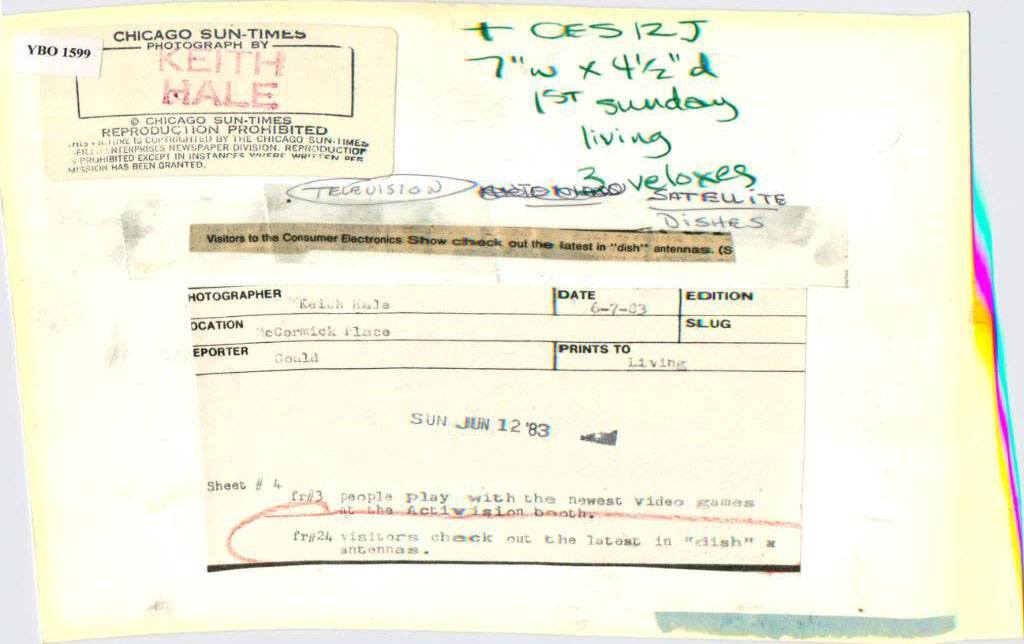 YBO 1599
CHICAGO SUN-TIMES
PHOTOGRAPH BY
KEITH
HALE
© CHICAGO SUN-TIMES
REPRODUCTION PROHIBITED
IS COPYRIGHTED BY THE CHICAGO SUN-TIMES
ENTERPRISES NEWSPAPER DIVISION. REPRODUCTION
PROHIBITED EXCEPT IN INSTANCES WHERE WRITTEN PER
MISSION HAS BEEN GRANTED.
+ CES12J
7"w x 4½"d
1ST sunday
living
3 veloxes
TELEVISION
SATELLITE
DISHES
Visitors to the Consumer Electronics Show check out the latest in "dish" antennas. (S
HOTOGRAPHER Keith Hale DATE 6-7-83 EDITION
OCATION McCormick Place SLUG
EPORTER Gould PRINTS TO Living
SUN JUN 12 '83
Sheet # 4
fr#3 people play with the newest video games
at the Activision booth.
fr#24 visitors check out the latest in "dish" x
antennas.